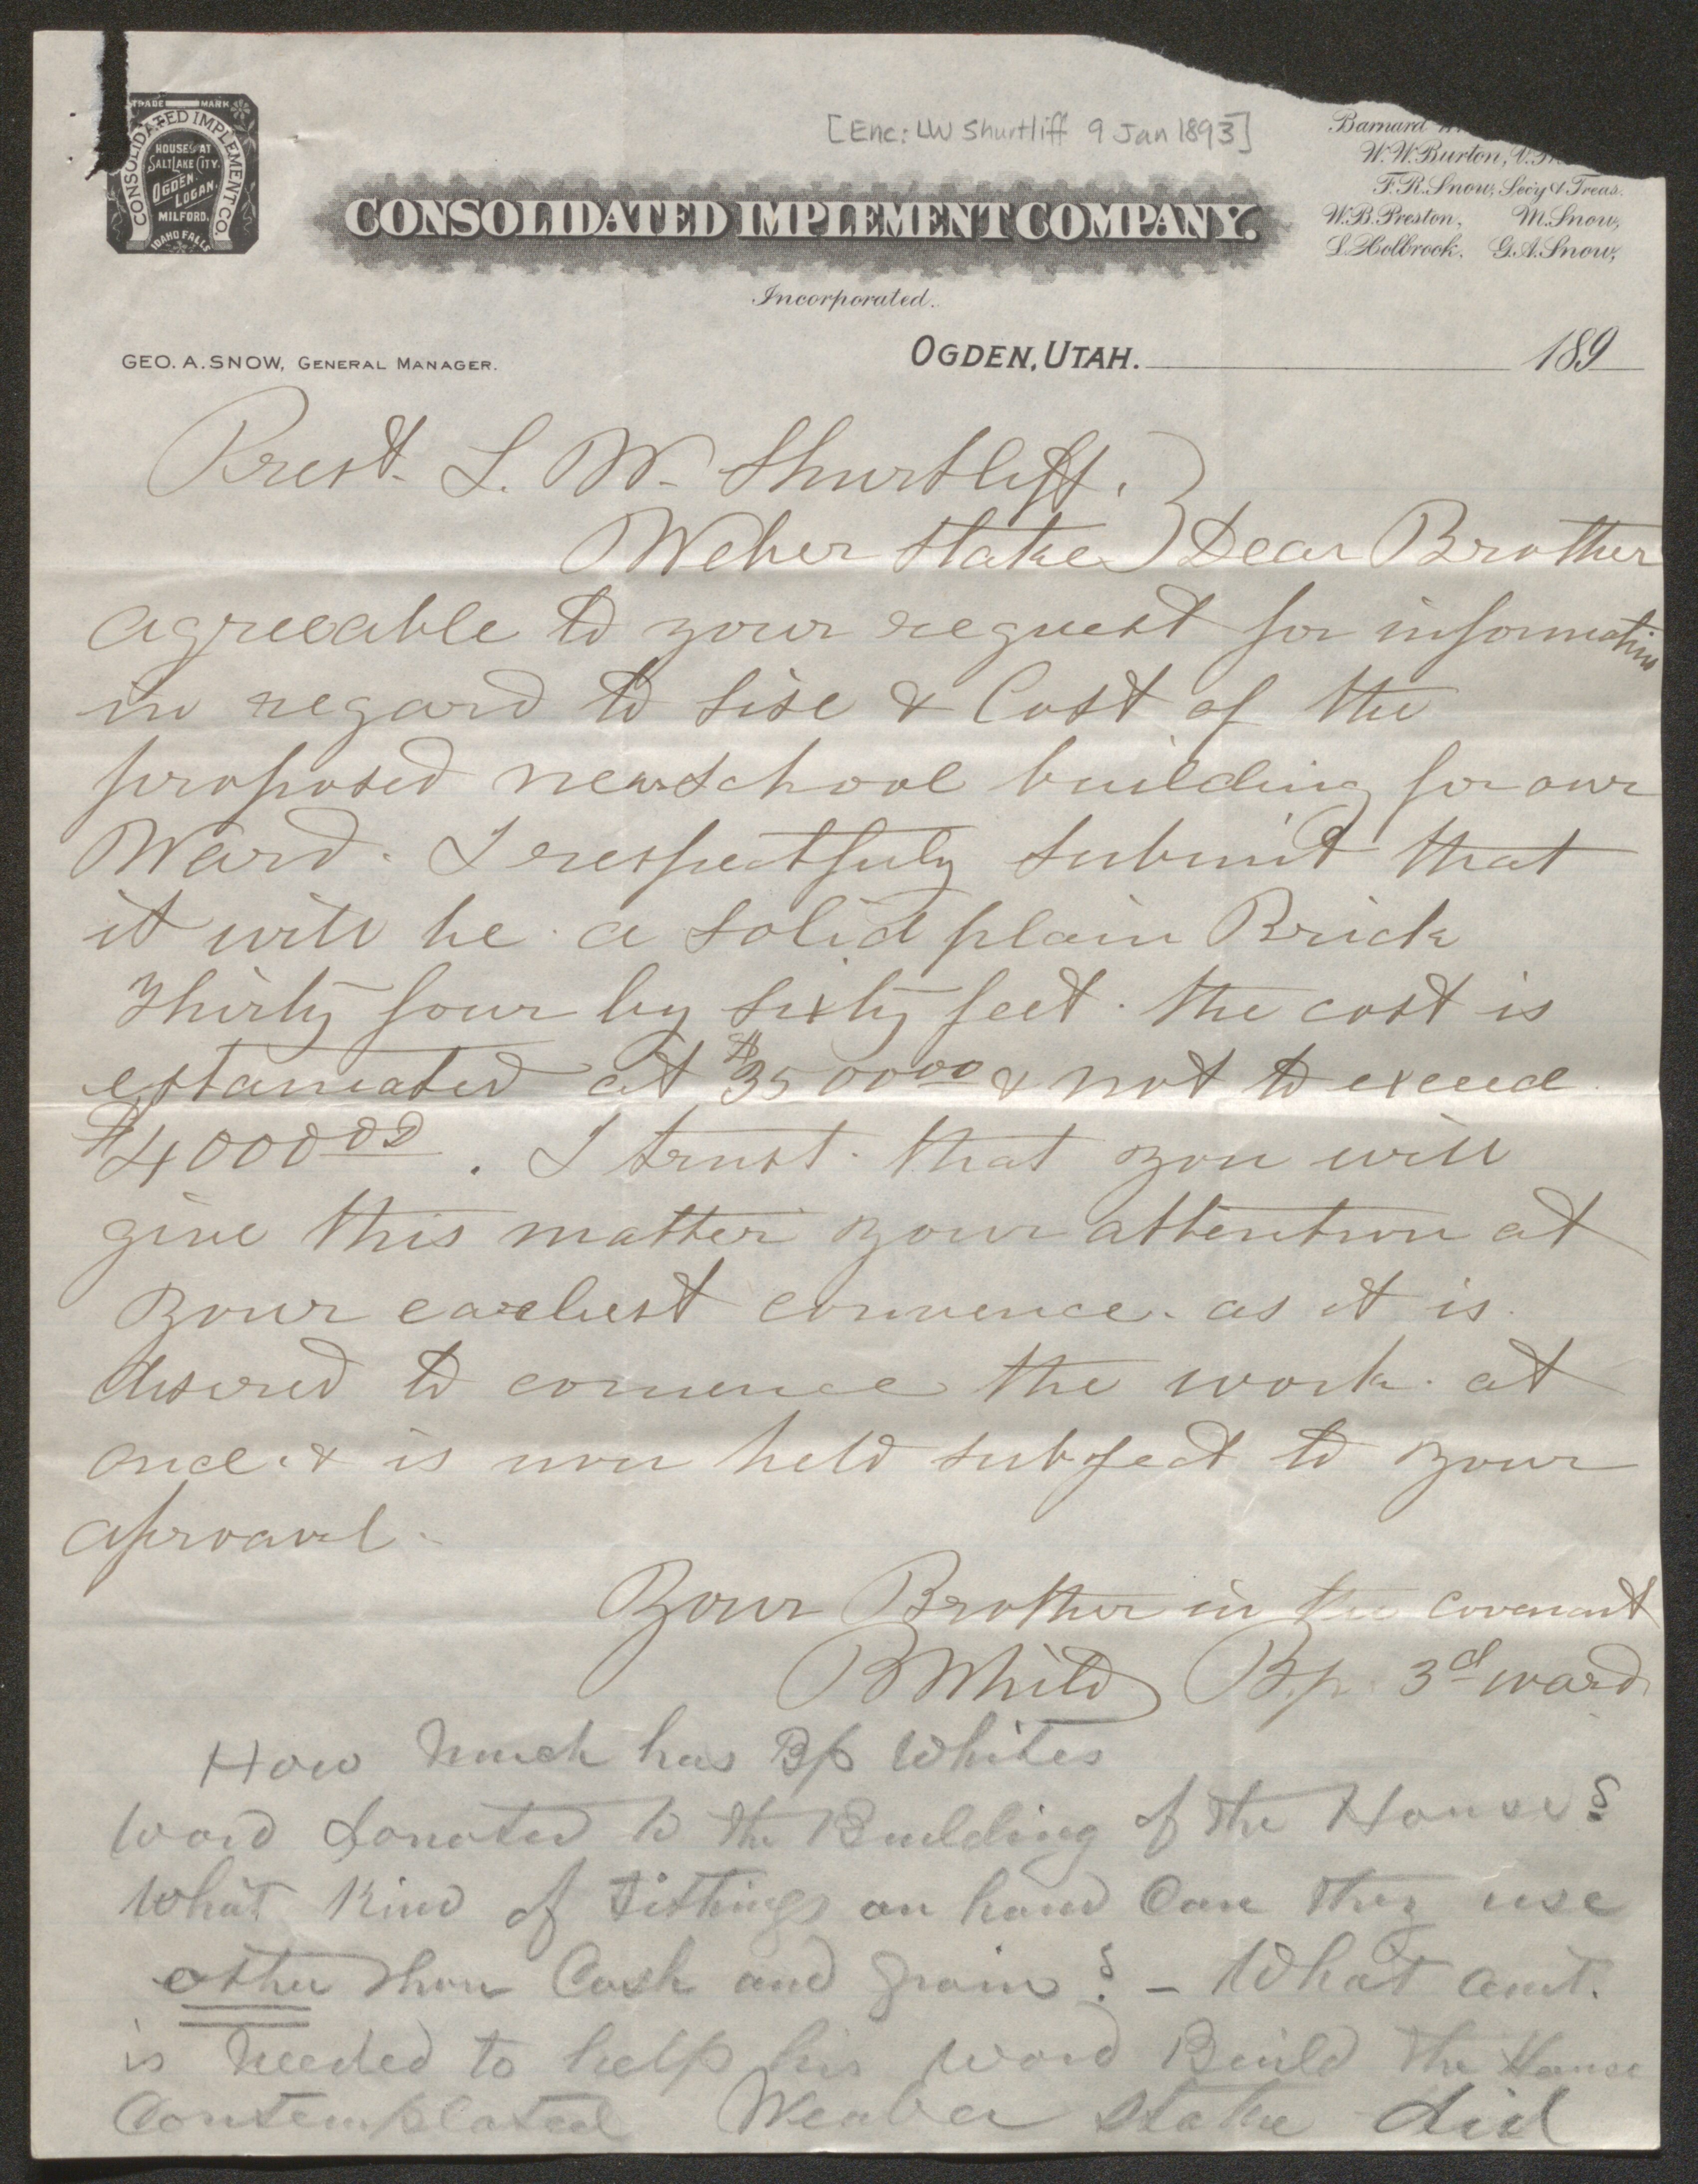 TRADE MARK
CONSOLIDATED IMPLEMENT CO.
HOUSES AT
SALT LAKE CITY.
OGDEN,
LOGAN,
MILFORD,
IDAHO FALLS
[Enc: LW Shurtliff 9 Jan 1893]
Barnard
W. W. Burton, V.
F. R. Snow, Secy & Treas.
W. B. Preston, M. Snow,
L. Holbrook. G. A. Snow,
CONSOLIDATED IMPLEMENT COMPANY.
Incorporated.
GEO. A. SNOW, GENERAL MANAGER.
OGDEN, UTAH. 189
Prest. L. W. Shurtliff.
Weber Stake) Dear Brother
agreeable to your request for information
in regard to sise & Cost of the
proposed new school building for our
Ward. I respectfuly submit that
it will be a solid plain Brick
Thirty four by sixty feet. the cost is
estamated at $3500 00 & not to exceed
$4000 00. I trust that you will
give this matter your attention at
your earliest convence. as it is
desired to comence the work at
once. & is now held subject to your
aproavl.
Your Brother in the Covenant
B White Bp. 3d ward
How much has Bp Whites
Ward donated to the Building of the House?
What Kind of Tithings on hand Can they use
other than Cash and grain? - What amt.
is needed to help his ward Build the House
Contemplated Weaber Stake did